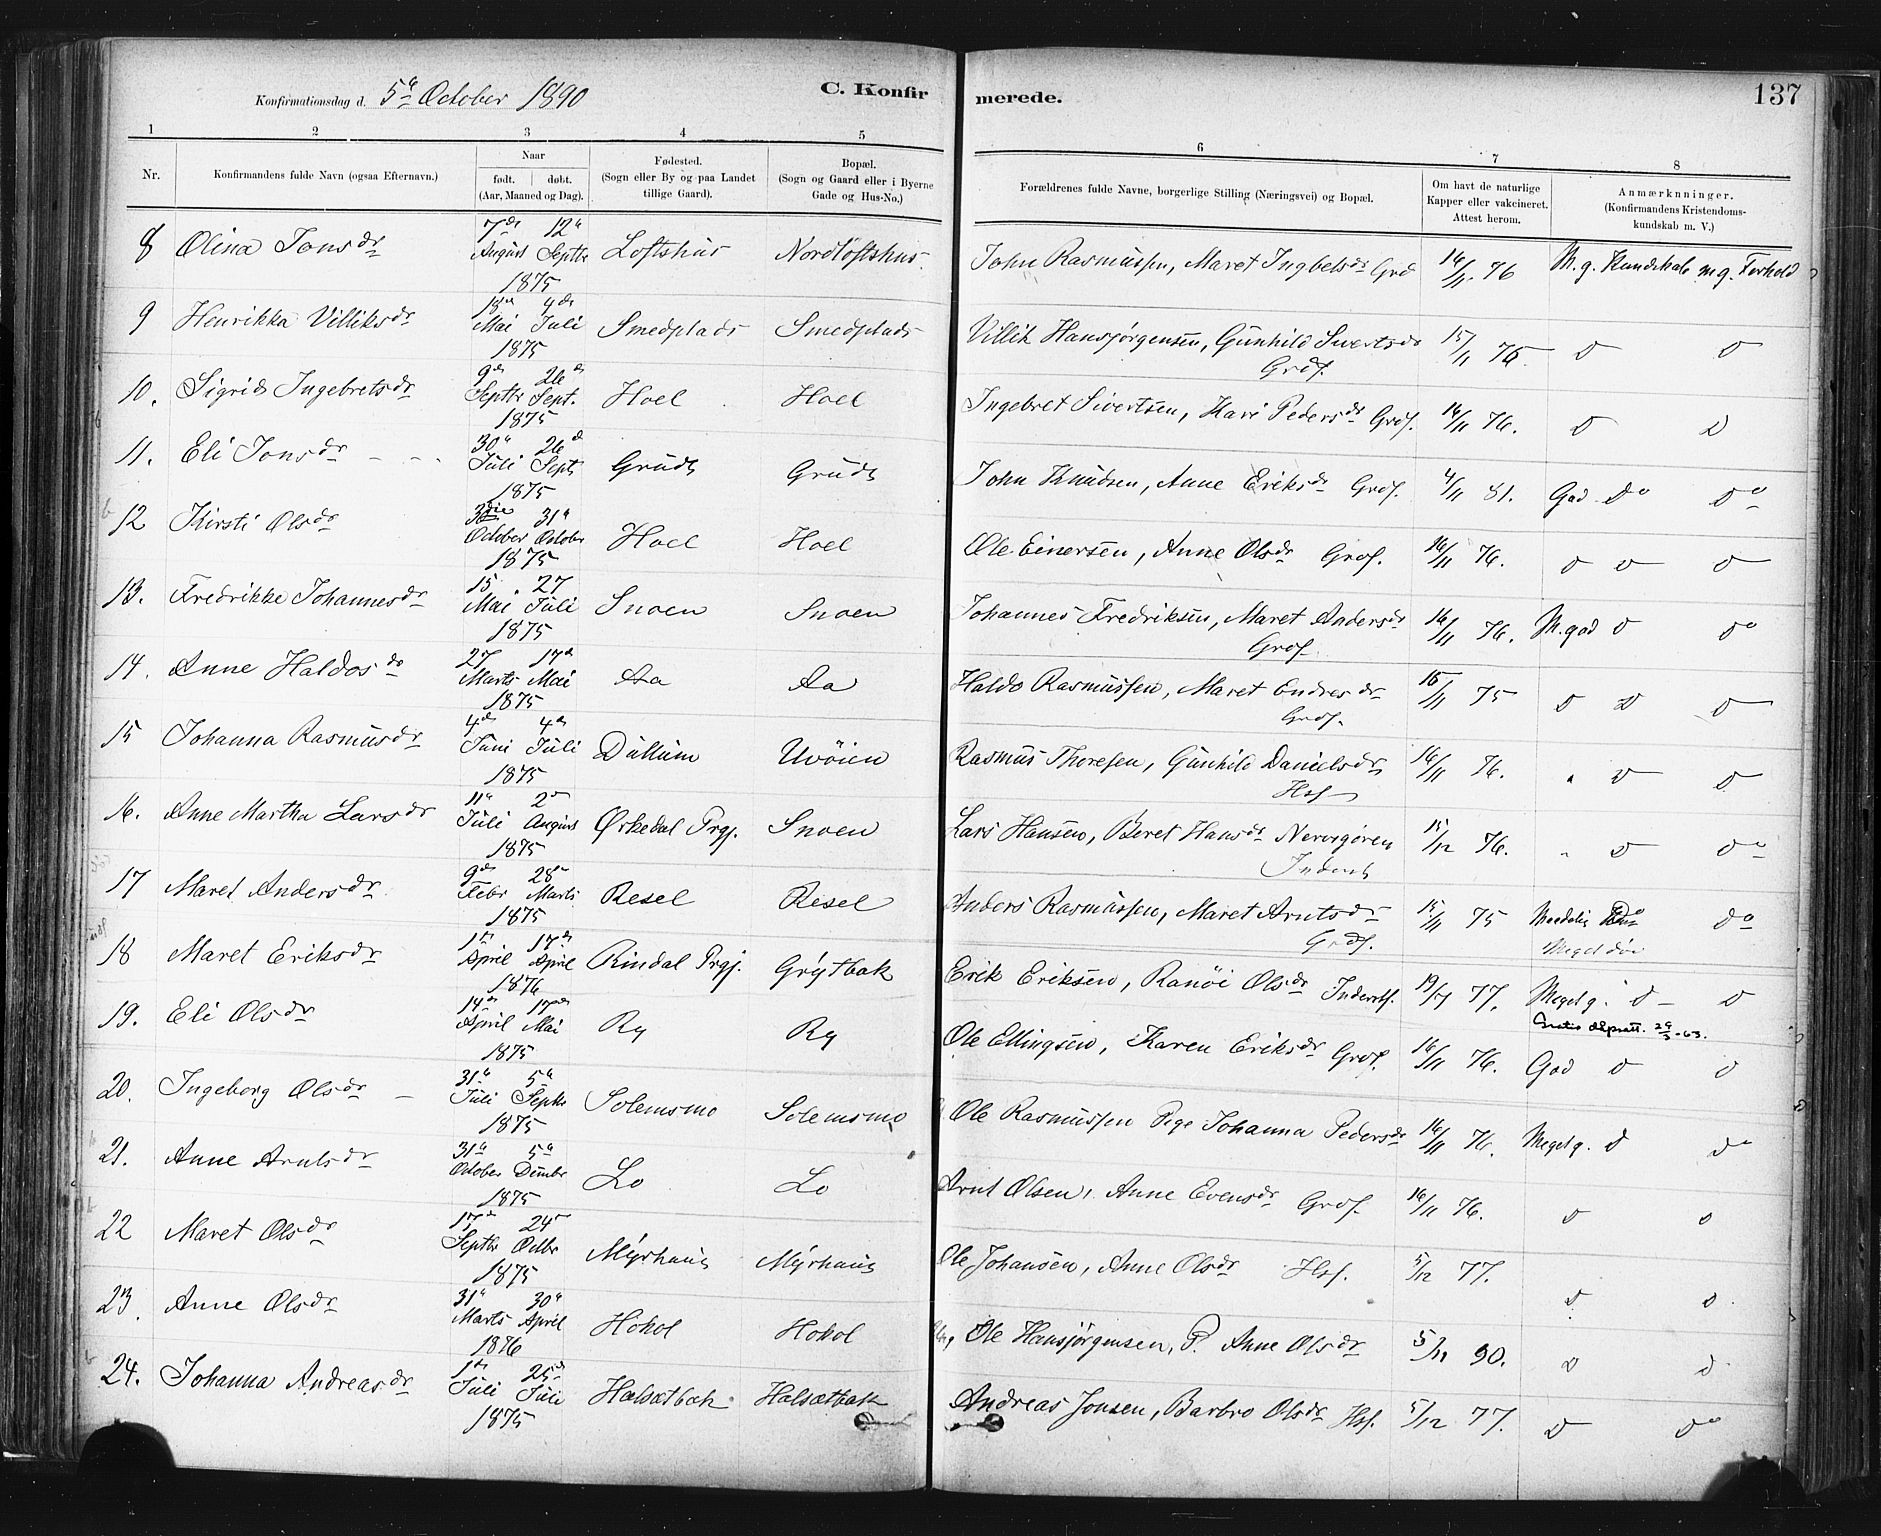 Konfirmationsdag d. 5te October 1890
C. Konfirmerede.
137
1 2 3 4 5 6 7 8
Nr.
Konfirmandens fulde Navn (ogsaa Efternavn.)
Naar
født. døbt.
(Aar, Maaned og Dag).
Fødested.
(Sogn eller By og paa Landet
tillige Gaard).
Bopæl.
(Sogn og Gaard eller i Byerne
Gade og Hus-No.)
Forældrenes fulde Navne, borgerlige Stilling (Næringsvei) og Bopæl.
Om havt de naturlige
Kapper eller vakcineret.
Attest herom.
Anmærkninger.
(Konfirmandens Kristendoms-
kundskab m. V.)
8 Olina Jonsdr 7de August 12te Septbr 1875 Loftshus Nordløftshus John Rasmussen, Maret Ingbelsdr Grd 16/11 76 M. g. Kundskab m g. Forhold
9 Henrikka Villiksdr 18de Mai 4de Juli 1875 Smedplads Smedplads Villik Hansjørgensen, Gunhild Sivertsdr Grdf. 15/11 76 D D
10. Sigrid Ingebretsdr 9de Septbr 26de Sept. 1875 Hoel Hoel Ingebret Sivertsen, Kari Pedersdr Grdf. 16/11 76. D D
11. Eli Jonsdr 30te Juli 26de Septb 1875 Grudt Grudt John Knudsen, Anne Eriksdr Grdf. 4/11 81. God Do Do
12 Kirsti Olsdr 3die October 31te October 1875 Hoel Hoel Ole Einersen, Anne Olsdr Grdf. 16/11 76. D D D
13. Fredrikke Johannesdr 15. Mai 27 Juli 1875 Snoen Snoen Johannes Fredriksen, Maret Andersdr Grdf. 16/11 76. M. god D Do
14. Anne Haldosdr 27 Marts 17de Mai 1875 Aa Aa Haldo Rasmussen, Maret Endresdr Grdf. 15/11 75 D D D
15 Johanna Rasmusdr 4de Juni 4de Juli 1875 Dullum Uvøien Rasmus Thoresen, Gunhild Danielsdr Hsf 16/11 76. " D D
16. Anne Martha Larsdr 11te Juli 2den August 1875 Ørkedal Prgj. Snoen Lars Hansen, Beret Hansdr Nervigøren Inderst 15/12 76. " D Do
17 Maret Andersdr 9de Febr 28de Marts 1875 Resel Resel Anders Rasmussen, Maret Arntsdr Grdf. 15/11 75 Maadelig Do Do
Meget døv
18 Maret Eriksdr 1ste April 17de April 1876 Rindal Prgj. Grytbak Erik Eriksen, Ranøi Olsdr Inderstf. 19/7 77. Meget g. D D
19. Eli Olsdr 14de April 17de Mai 1875 Ry Ry Ole Ellingsen, Karen Eriksdr Grdf. 16/11 76. God D D
20. Ingeborg Olsdr 31te Juli 5te Septbr 1875 Solemsmo Solemsmo Ole Rasmussen Pige Johanna Pedersdr 16/11 76. Meget g. D Do
21. Anne Arntsdr 31te October 5te Dcmbr 1875 Lo Lo Arnt Olsen, Anne Evensdr Grdf. 16/11 76. D D
22 Maret Olsdr 17de Septbr 24de Octbr 1875 Myrhaug Myrhaug Ole Johansen, Anne Olsdr Hsf. 5/12 77. D D
23. Anne Olsdr 31te Marts 30te April 1876 Hokol Hokol Ole Hansjørgensen, P. Anne Olsdr 5/11 90. D D
24. Johanna Andreasdr 1ste Juli 25de Juli 1875 Halsætbak Halsætbak Andreas Jonsen, Barbro Olsdr Hsf. 5/12 77. D Do